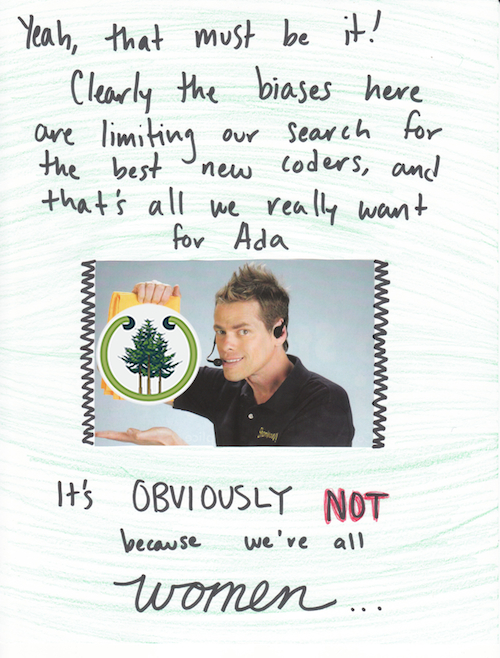 Yeah, that must be it!
Clearly the biases here
are limiting our search for
the best new coders, and
that's all we really want
for Ada
It's OBVIOUSLY NOT
because we're all
women...